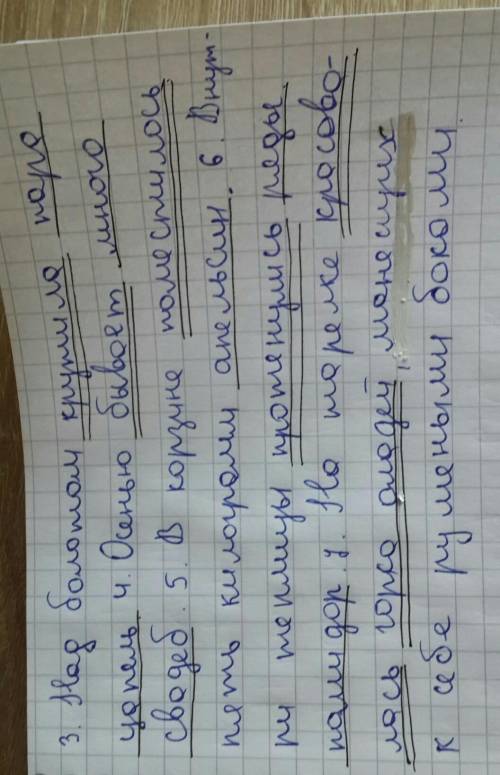 3. Над болотом кружила пара
цапель. 4. Осенью бывает много
свадеб. 5. В корзине поместилось
пять килограмм апельсин. 6. Внут-
ри теплицы протянулись ряды
помидор. 7. На тарелке красова-
лась горка оладей, манящих
к себе румяными боками.